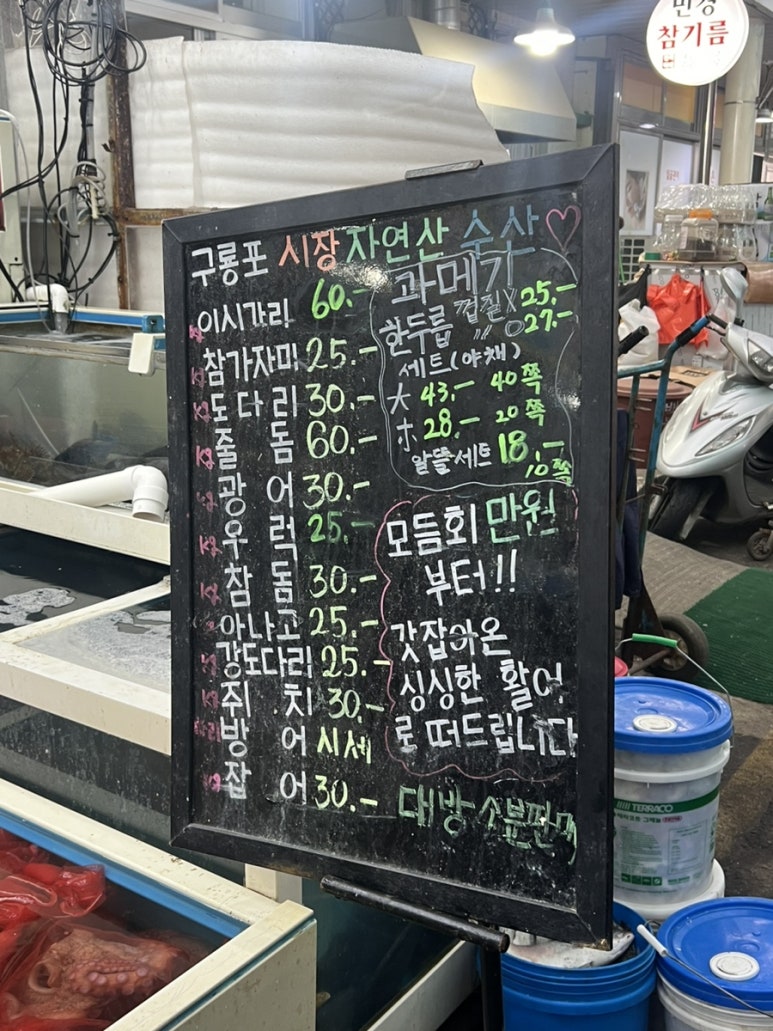 참기름
구룡포 시장 자연산 수산
이시가리 60.-
kg 참가자미 25.-
kg 도다리 30.-
kg 줄돔 60.-
kg 광어 30.-
kg 우럭 25.-
kg 참돔 30.-
아나고 25.-
kg 강도다리 25.-
kg 쥐치 30.-
방어 시세
kg 잡어 30.-
과메기
한두릅 껍질 X 25.-
〃 O 27.-
세트(야채)
大 43.- 40쪽
小 28.- 20쪽
알뜰세트 18.-
10쪽
모듬회 만원
부터!!
갓잡아온
싱싱한 활어
로 떠드립니다
대방 소분판매
TERRACO